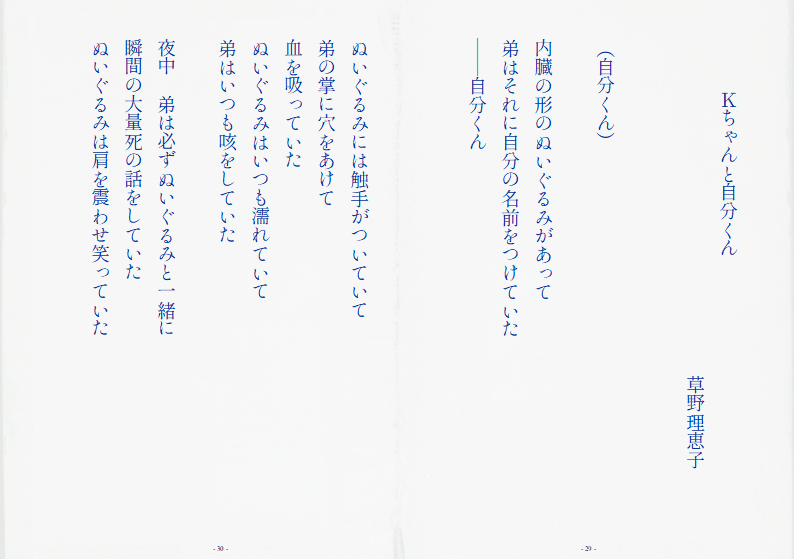 Kちゃんと自分くん
草野理恵子
(自分くん)
内臓の形のぬいぐるみがあって
弟はそれに自分の名前をつけていた
――自分くん
- 29 -
ぬいぐるみには触手がついていて
弟の掌に穴をあけて
血を吸っていた
ぬいぐるみはいつも濡れていて
弟はいつも咳をしていた
夜中　弟は必ずぬいぐるみと一緒に
瞬間の大量死の話をしていた
ぬいぐるみは肩を震わせ笑っていた
- 30 -